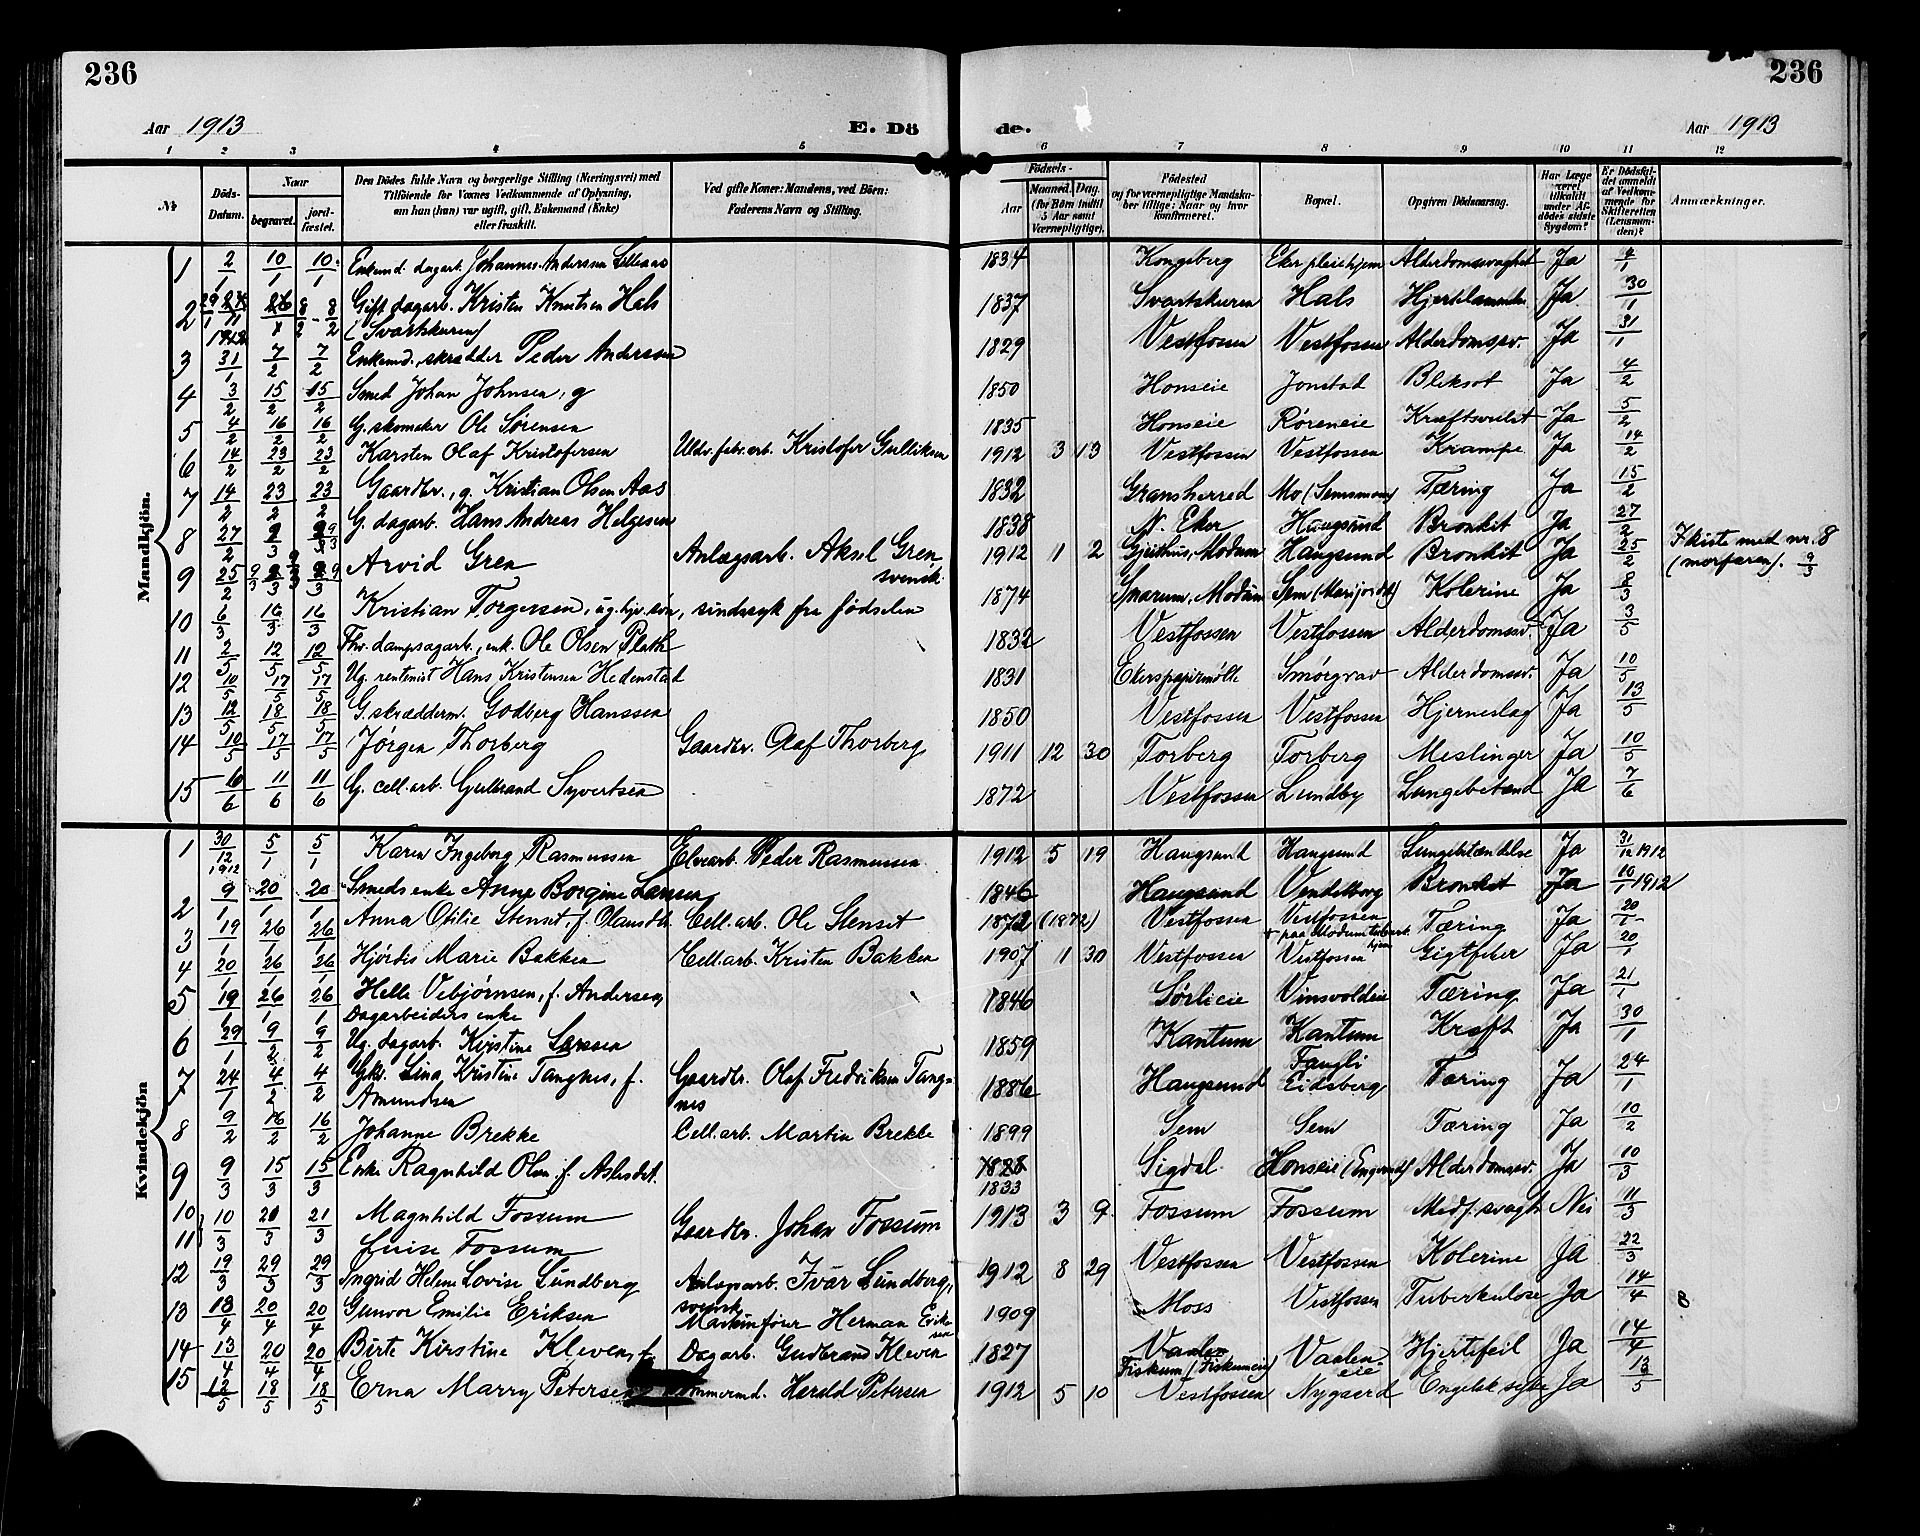 236
236
Aar 1913
E. Dö
de.
Aar 1913
1 2 3 4 5 6 7 8 9 10 11 12
№
Döds-Datum.
Naar
begravet.
jord-fæstet.
Den Dödes fulde Navn og borgerlige Stilling (Næringsvei) med
Tilföiende for Voxnes Vedkommende af Oplysning,
om han (hun) var ugift, gift, Enkemand (Enke)
eller fraskilt.
Ved gifte Koner: Mandens, ved Börn:
Faderens Navn og Stilling.
Födsels-
Aar
Maaned. Dag.
(for Börn indtil 5 Aar samt Værnepligtige).
Födested
og for værnepligtige Mandska-
ber tillige: Naar og hvor
konfirmeret.
Bopæl.
Opgiven Dödsaarsag.
Har Læge været tilkaldt under Afdödes sidste Sygdom?
Er Dödsfaldet anmeldt af Vedkommende for Skifteretten (Lensmanden)?
Anmærkninger.
Mandkjön.
1 2/1 10/1 10/1 Enkemd. dagarb. Johannes Anderssen 1834 Kongsberg Eker pleiehjem Alderdomssvaghet Ja 4/1
2 29/1 8/2 - 8/2 Gift dagarb. Kristen Knutsen Hals (Svartskuren) 1837 Svartskuren Hals Ja 30/1
3 31/1 7/2 7/2 Enkemd. skrædder Peder Anderssen 1829 Vestfossen Vestfossen Alderdomssv. Ja 31/1
4 3/2 15/2 15/2 Smed Johan Johnsen, g 1850 Honseie Jonstad Bleksot Ja 4/2
5 4/2 16/2 16/2 G. skomaker Ole Sørensen 1835 Honseie Røreneie Kræftsvulst Ja 5/2
6 14/2 23/2 23/2 Karsten Olaf Kristofersen Uldv.fabr.arb. Kristofer Gulliksen 1912 3 13 Vestfossen Vestfossen Krampe Ja 14/2
7 14/2 23/2 23/2 Gaardbr., g. Kristian Olsen Aas 1832 Gransherred Mo (Semsmoen) Tæring Ja 15/2
8 27/2 9/3 G. dagarb. Hans Andreas Helgesen 1838 N. Eker Haugsund Bronkit Ja 27/2
9 25/2 9/3 9/3 Arvid Gren Anlægsarb. Aksel Gren, svensk. 1912 1 2 Gjeithus, Modum Haugsund Bronkit Ja 25/2 I kiste med nr. 8 (morfaren). 9/3
10 6/3 16/3 16/3 Kristian Torgersen, ug. hjv. søn, sindssyk fra fødselen 1874 Snarum, Modum Kolerine Ja 8/3
11 2/5 12/5 12/5 Fhv. dampsagarb., enk. Ole Olsen Plath 1832 Vestfossen Vestfossen Alderdomssv. Ja 3/5
12 10/5 17/5 17/5 Ug. rentenist Hans Kristensen Hedenstad 1831 Ekerspapirmølle Smørgrav Alderdomssv. Ja 10/5
13 12/5 18/5 18/5 G. skrædderm. Godberg Hanssen 1850 Vestfossen Vestfossen Hjerneslag Ja 13/5
14 10/5 17/5 17/5 Jørgen Thorberg Gaardbr. Olaf Thorberg 1911 12 30 Torberg Torberg Meslinger Ja 10/5
15 6/6 11/6 11/6 G. cell.arb. Gulbrand Syvertsen 1872 Vestfossen Lundby Lungebetænd Ja 7/6
Kvindekjön
1 30/12 1912 5/1 5/1 Karen Ingeborg Rasmussen Elvearb. Peder Rasmussen 1912 5 19 Haugsund Haugsund Lungebetændelse Ja 31/12 1912
2 9/1 20/1 20/1 Smeds enke Anne Borgine Larsen 1846 Haugsund Vendelborg Bronkit Ja 10/1 1912
3 19/1 26/1 26/1 Anna Otilie Stenset, f. Olausdtr. Cell.arb. Ole Stenset 1872 (1872) Vestfossen Vestfossen + paa Modum tuberk. hjem Tæring Ja 20/1
4 20/1 26/1 26/1 Hjørdis Marie Bakken Cell.arb. Kristen Bakken 1907 1 30 Vestfossen Vestfossen Gigtfeber Ja 20/1
5 19/1 26/1 26/1 Helle Vebjørnsen, f. Andersen, Dagarbeiders enke 1846 Sørlieie Vinsvoldeie Tæring Ja 21/1
6 29/1 9/2 9/2 Ug. dagarb. Kirstine Larssen 1859 Kantum Kantum Kræft Ja 30/1
7 24/1 4/2 4/2 Gkr. Lina Kristine Tangnes, f. Amundsen Gaardbr. Olaf Fredriksen Tangnes 1886 Haugsund Fangli Eidsberg Tæring Ja 24/1
8 9/2 16/2 16/2 Johanne Brekke Cell.arb. Martin Brekke 1899 Sem Sem Tæring Ja 10/2
9 9/3 15/3 15/3 Enke Ragnhild Olsen f. Aslesdt. 1828 1833 Sigdal Honseie (Engerud) Alderdomssv. Ja 10/3
10 Magnhild Fossum
11 10/3 21/3 21/3 Luise Fossum Gaardbr. Johan Fossum 1913 3 9 Fossum Fossum Medf. svagh Nei 11/3
12 19/3 29/3 29/3 Ingrid Helene Lovise Lundberg Anlægsarb. Ivar Lundberg, svensk 1912 8 29 Vestfossen Vestfossen Kolerine Ja 22/3
13 18/4 20/4 20/4 Gunvor Emilie Eriksen Maskinfører Herman Eriksen 1909 Moss Vestfossen Tuberkulose Ja 14/4 8
14 13/4 20/4 20/4 Birte Kirstine Kleven, f. Dagarb. Gudbrand Kleven 1827 Vaaler Fiskum (Fiskumeie) Vaaleneie Hjertefeil Ja 14/4
15 12/5 18/5 18/5 Erna Marry Petersen Tømmermd. Herald Petersen 1912 5 10 Vestfossen Nygaard Engelsk syke Ja 13/5